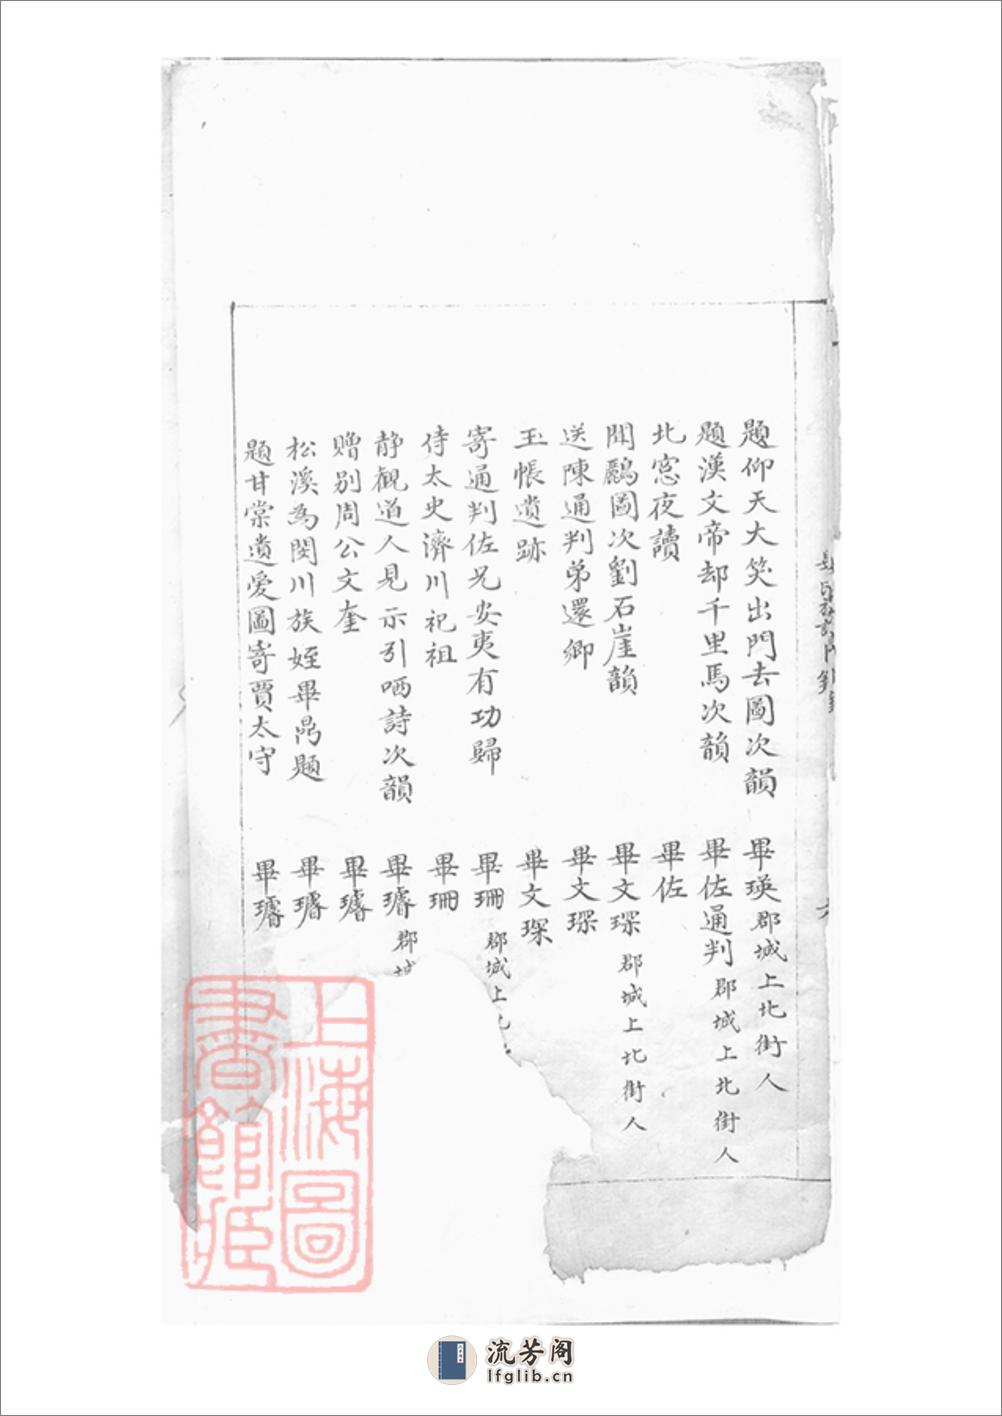 題仰天大笑出門去圖次韻 畢瑛郡城上北街人
題漢文帝却千里馬次韻 畢佐通判郡城上北街人
北窓夜讀 畢佐
閑鷗圖次劉石崖韻 畢文琛郡城上北街人
送陳通判弟還鄉 畢文琛
玉帳遺跡 畢文琛
寄通判佐兄安夷有功歸 畢珊郡城上
侍太史濟川祀祖 畢珊
静觀道人見示引哂詩次韻 畢璿郡城
贈别周公文奎 畢璿
松溪為閔川族姪畢鼎題 畢璿
題甘棠遺愛圖寄賈太守 畢璿
上海圖書館藏
流芳阁
lfglib.cn